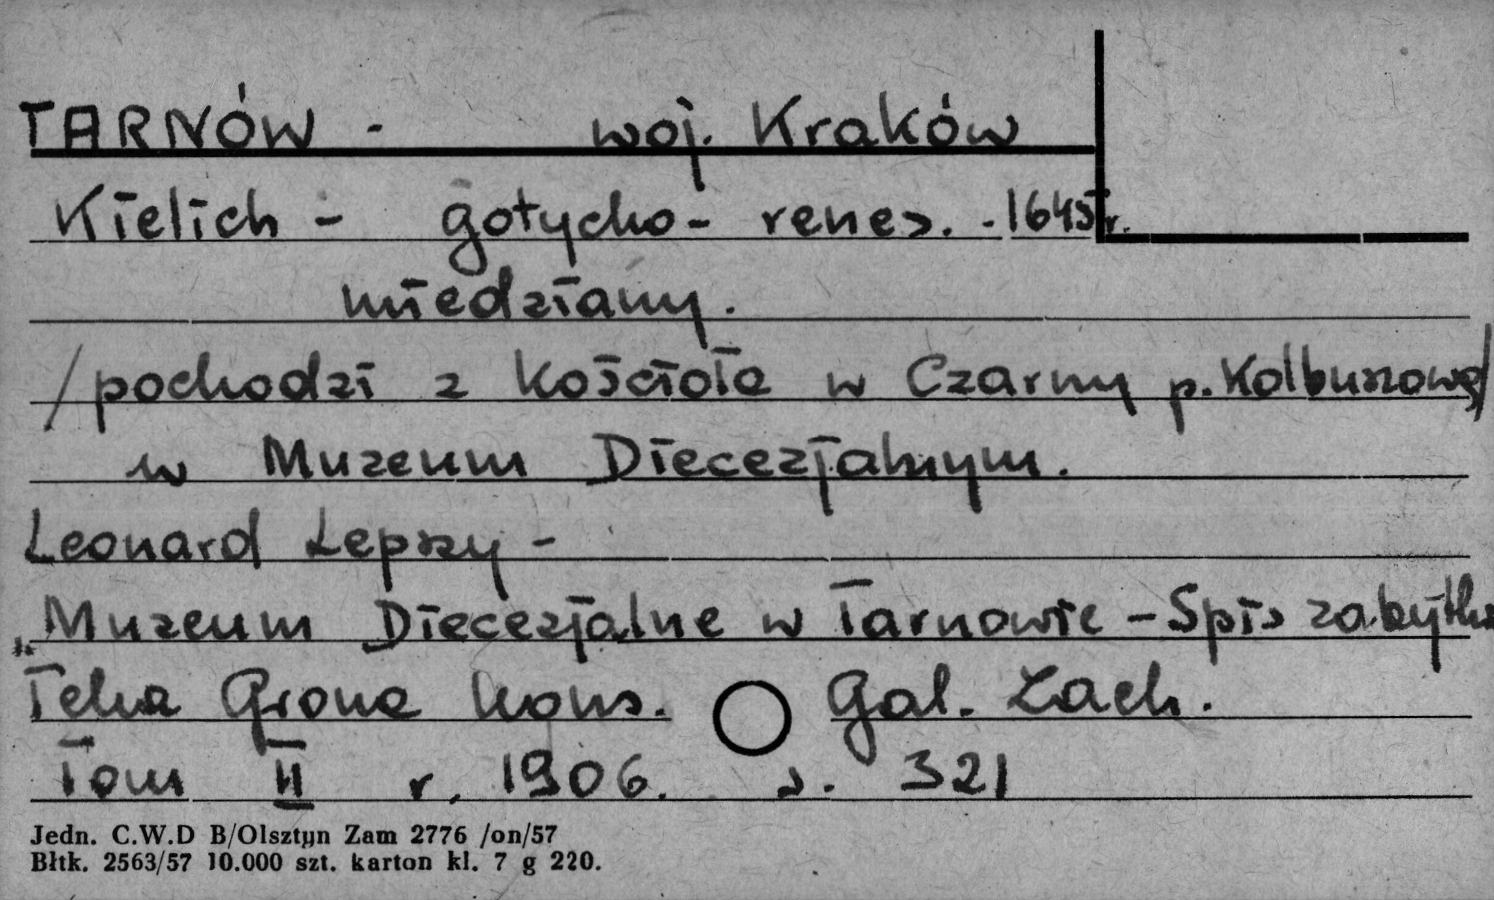 TARNÓW - woj. Kraków
Kielich - gotycko - renes. - 1645 r.
miedziany.
/pochodzi z kościoła w Czarny p. Kolbuszową/
w Muzeum Diecezjalnym.
Leonard Lepszy -
"Muzeum Diecezjalne w Tarnowie - Spis zabytków
Teka Grona Kons. Gal. Zach.
Tom II r. 1906. s. 321
Jedn. C.W.D B/Olsztyn Zam 2776 /on/57
Błtk. 2563/57 10.000 szt. karton kl. 7 g 220.